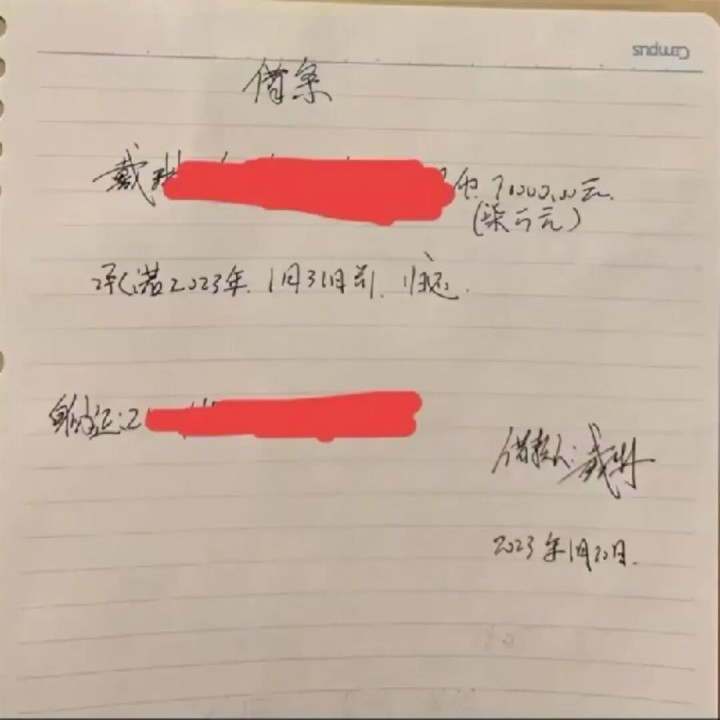 Campus
借条
戴 币 70000.00元
(柒万元)
承诺2023年1月31日前归还.
身份证:2
借款人:戴琳
2023年1月20日.